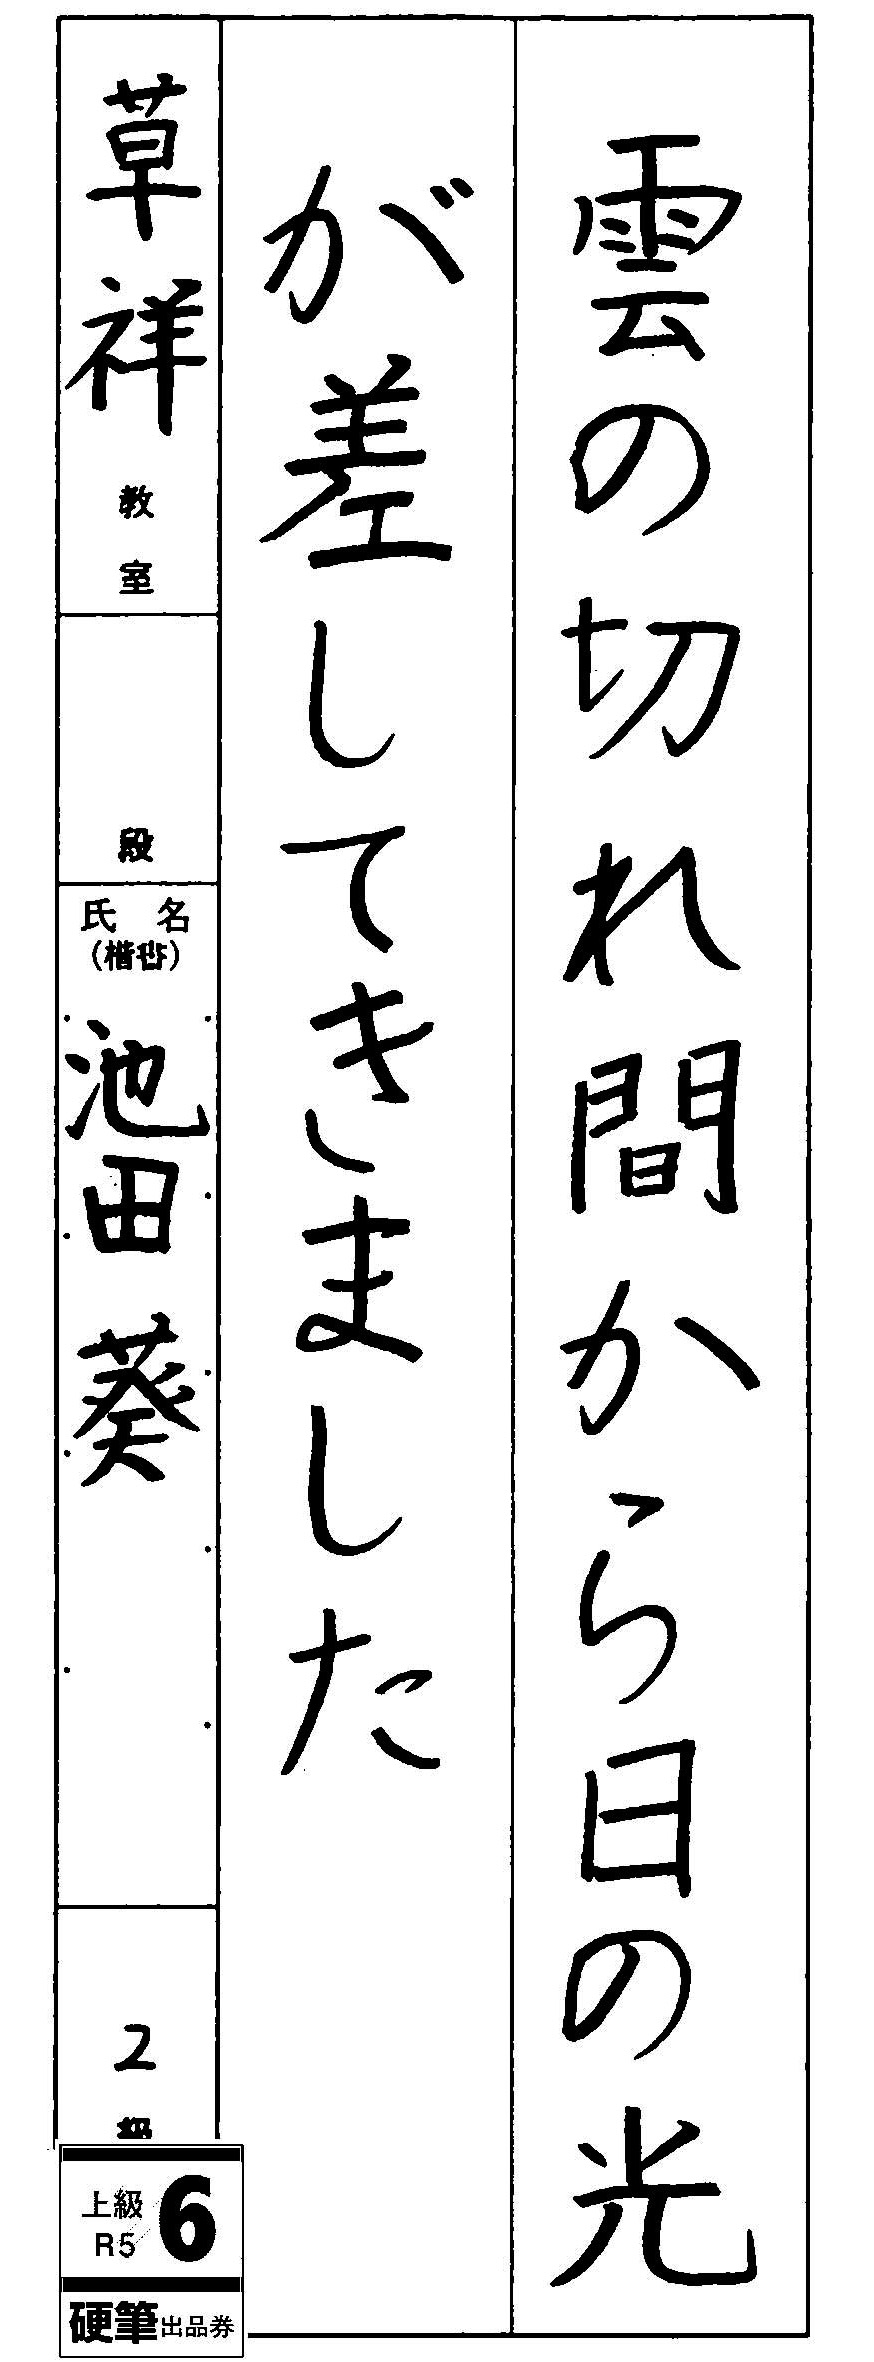 雲の切れ間から日の光
が差してきました
草祥教室
段
氏名
(楷書)
池田葵
2級
上級
R5
6
硬筆出品券